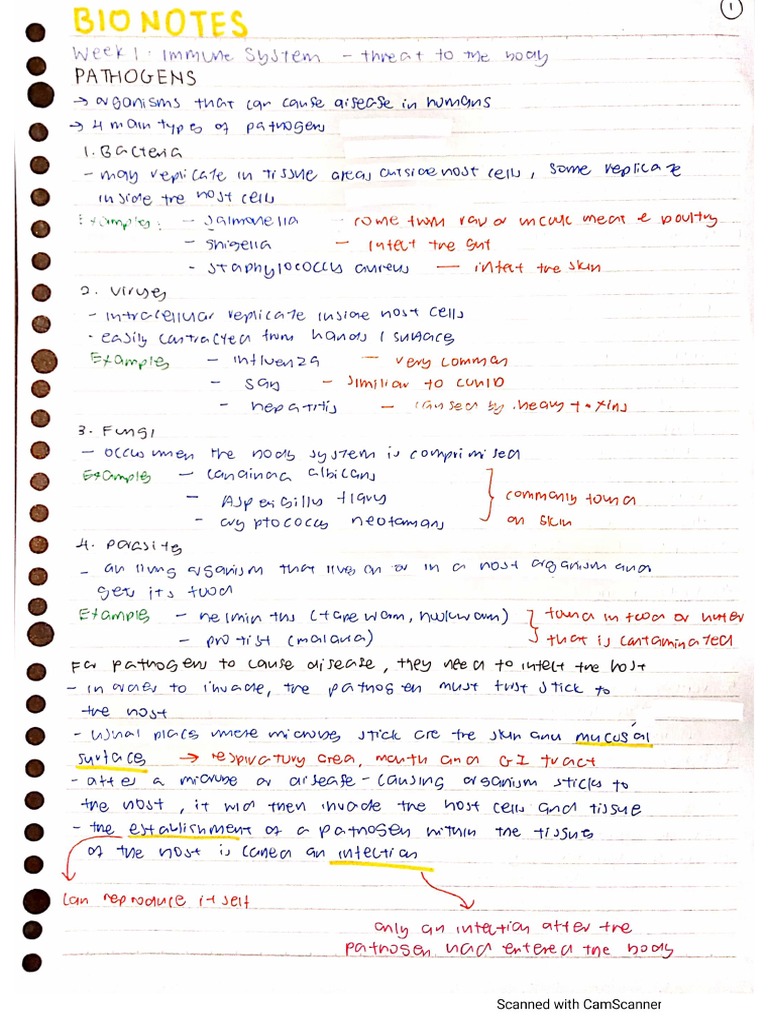 1
BIO NOTES
Week 1: Immune System - threat to the body
PATHOGENS
→ organisms that can cause disease in humans
→ 4 main types of pathogens
1. Bacteria
- may replicate in tissue areas outside host cells, some replicate
inside the host cells
Examples: - Salmonella - come from raw or meat & poultry
- Shigella - infect the gut
- Staphylococcus aureus - infect the skin
2. Viruses
- intracellular replicate inside host cells
- easily contracted from hands / surfaces
Examples - influenza - very common
- - similiar to COVID
- hepatitis - caused by heavy toxins
3. Fungi
- occurs when the body system is comprimised
Examples - albicans
- Aspergillus flavus
- cryptococcus
commonly found
on skin
4. Parasite
- an living organism that lives on or in a host organism and
gets its food
Example - helminths (tapeworm, hookworm)
- protist (malaria)
found in food or water
that is contaminated
For pathogens to cause disease, they need to infect the host
- in order to invade, the pathogen must first stick to
the host
- usual places where microbes stick are the skin and mucosal
surfaces → respiratory area, mouth and GI tract
- after a microbe or disease-causing organism sticks to
the host, it will then invade the host cells and tissue
- the establishment of a pathogen within the tissues
of the host is called an infection
can reproduce itself
only an infection after the
pathogen had entered the body
Scanned with CamScanner